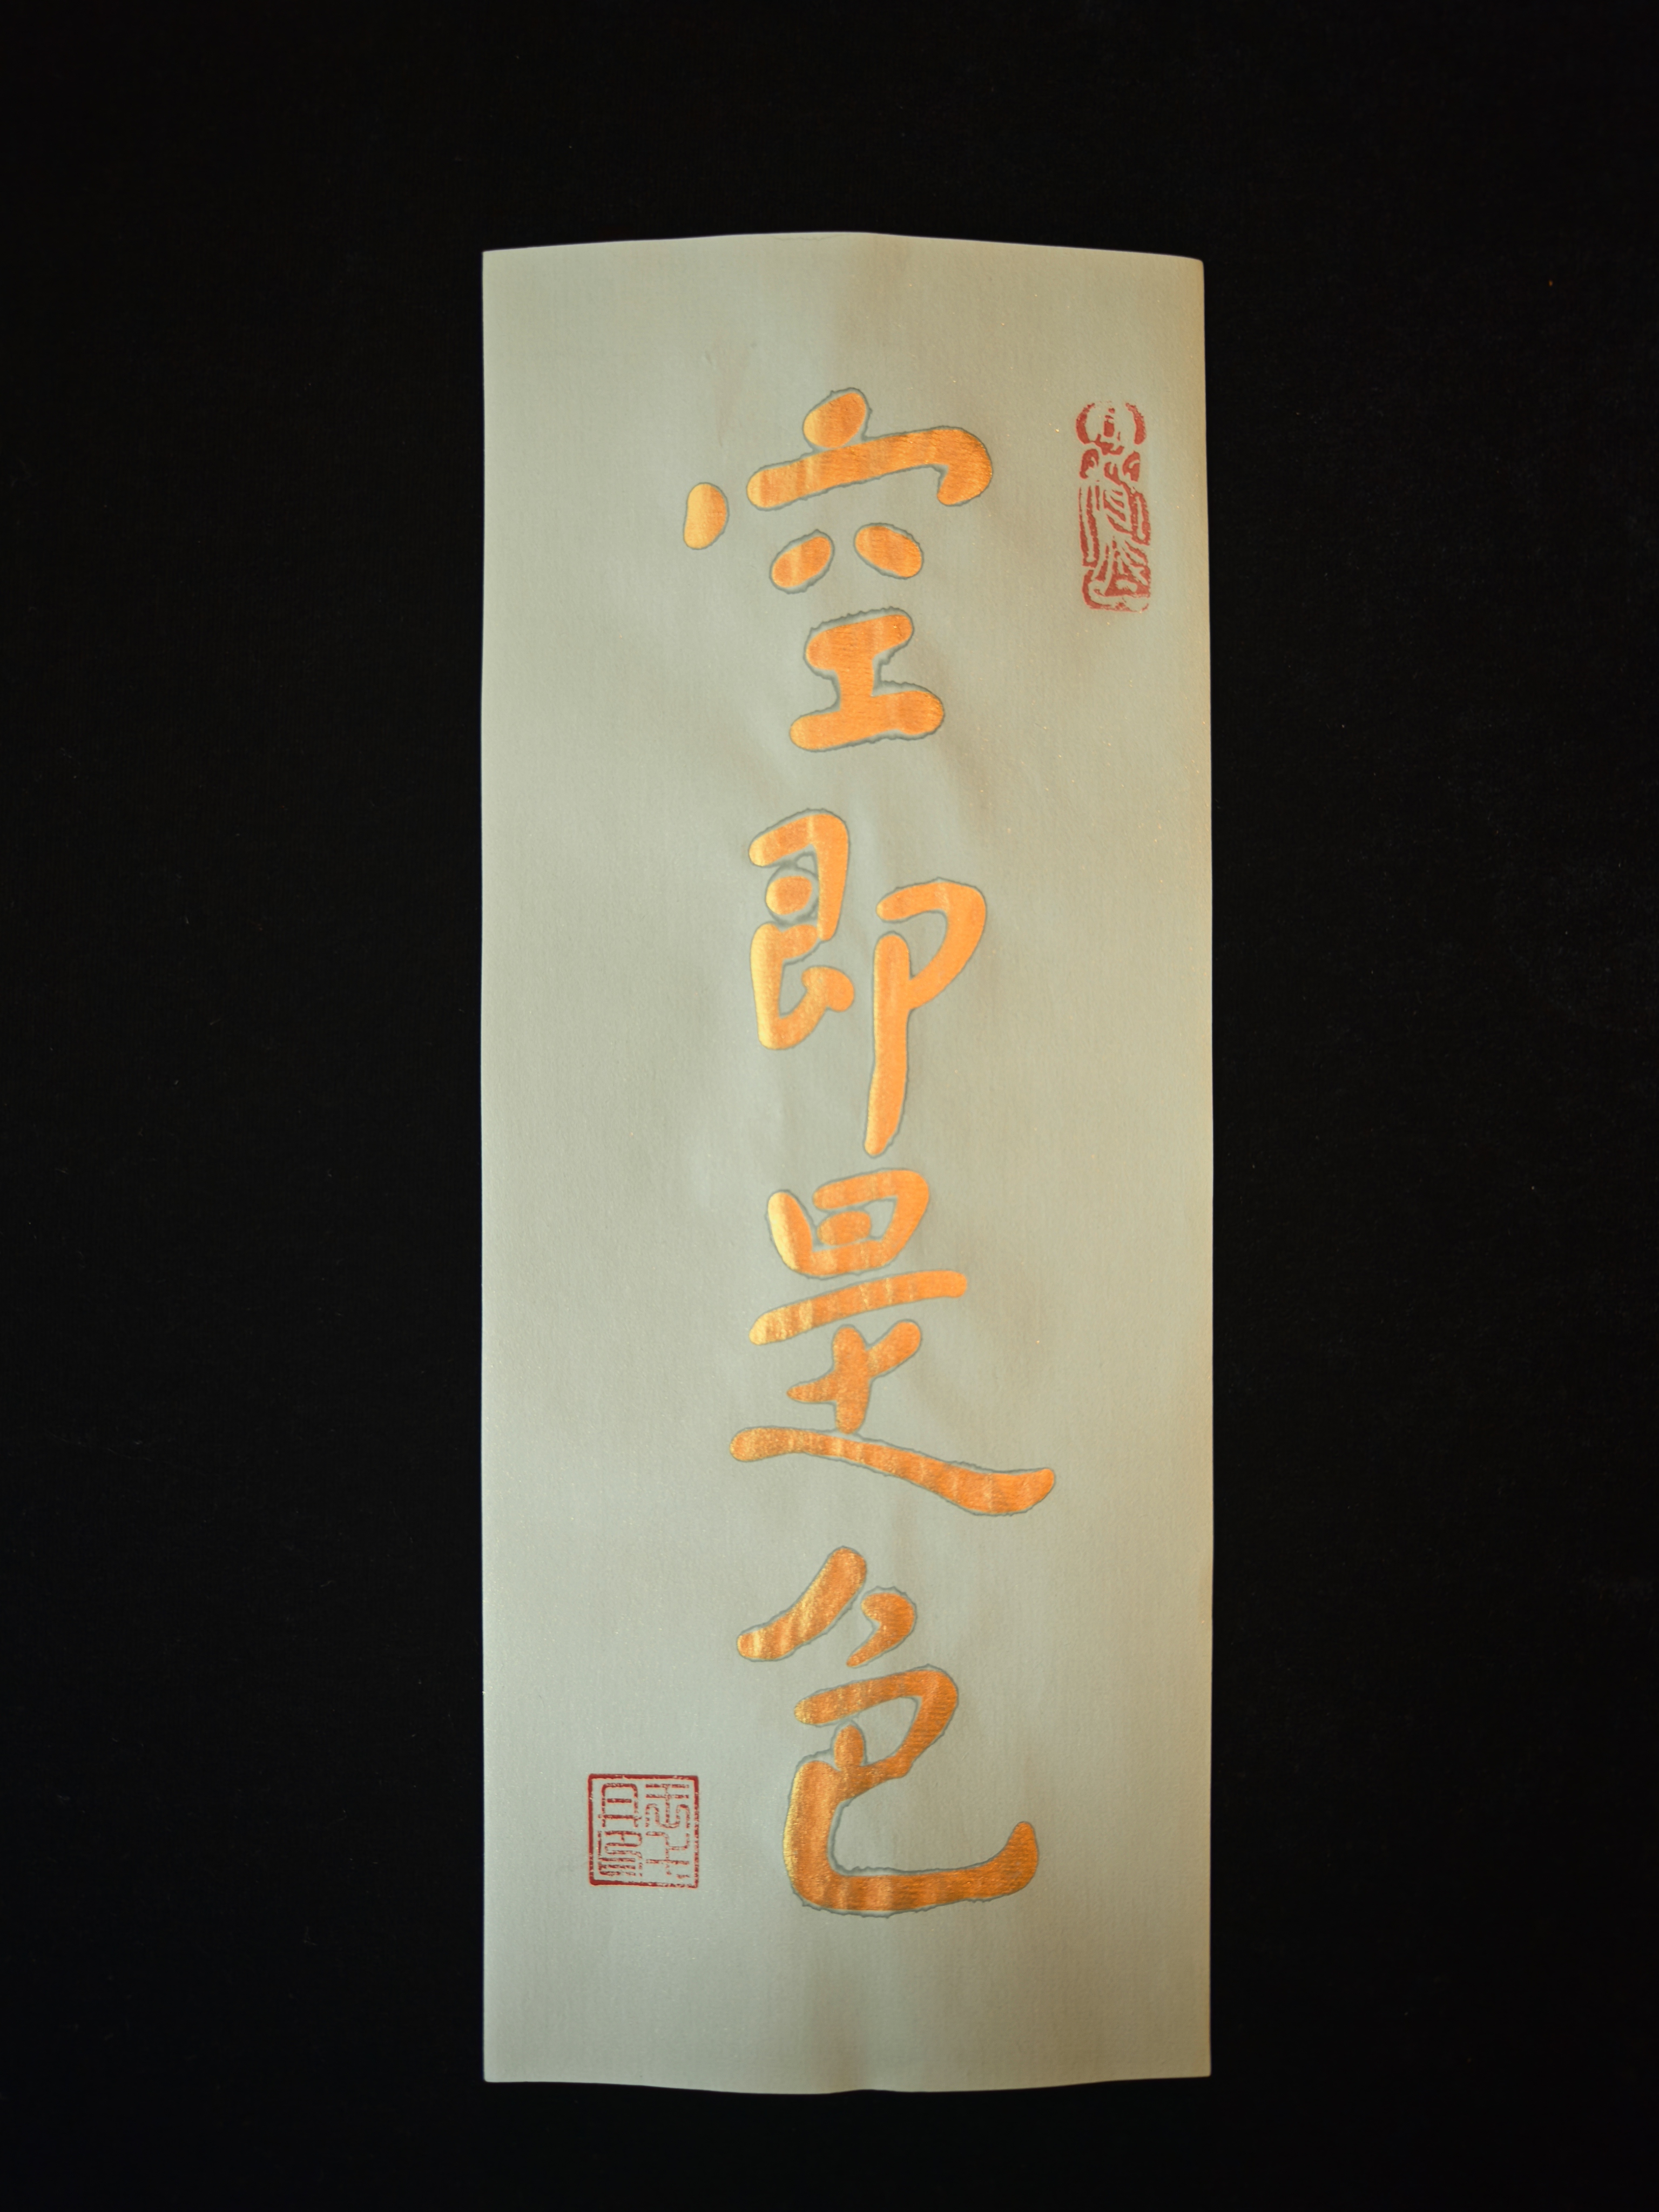 空即是色